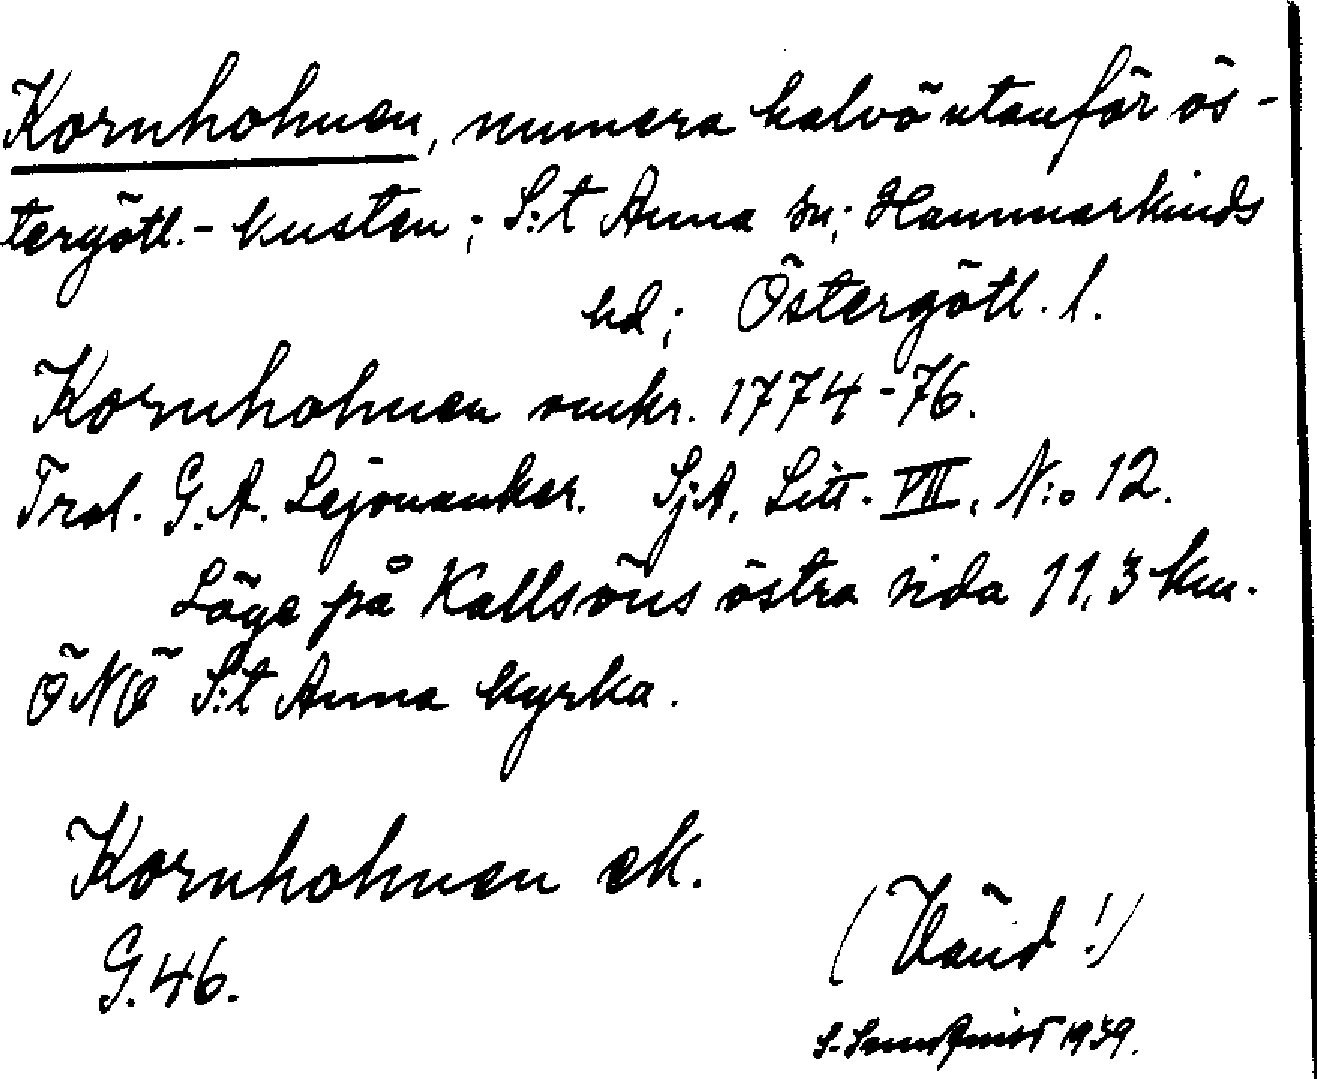 Kornholmen, numera halvö utanför ös-
tergötl.-kusten; S:t Anna sn; Hammarkinds
hd; Östergötl. l.
Kornholmen omkr. 1774-76.
Trol. G.A. Lejonanker. SjA. Litt. VIII. N:o 12.
Läge på Kallsöns östra sida 11,3 km.
ÖNÖ S:t Anna kyrka.
Kornholmen ek.
G.46.
(Vänd!)
1939.